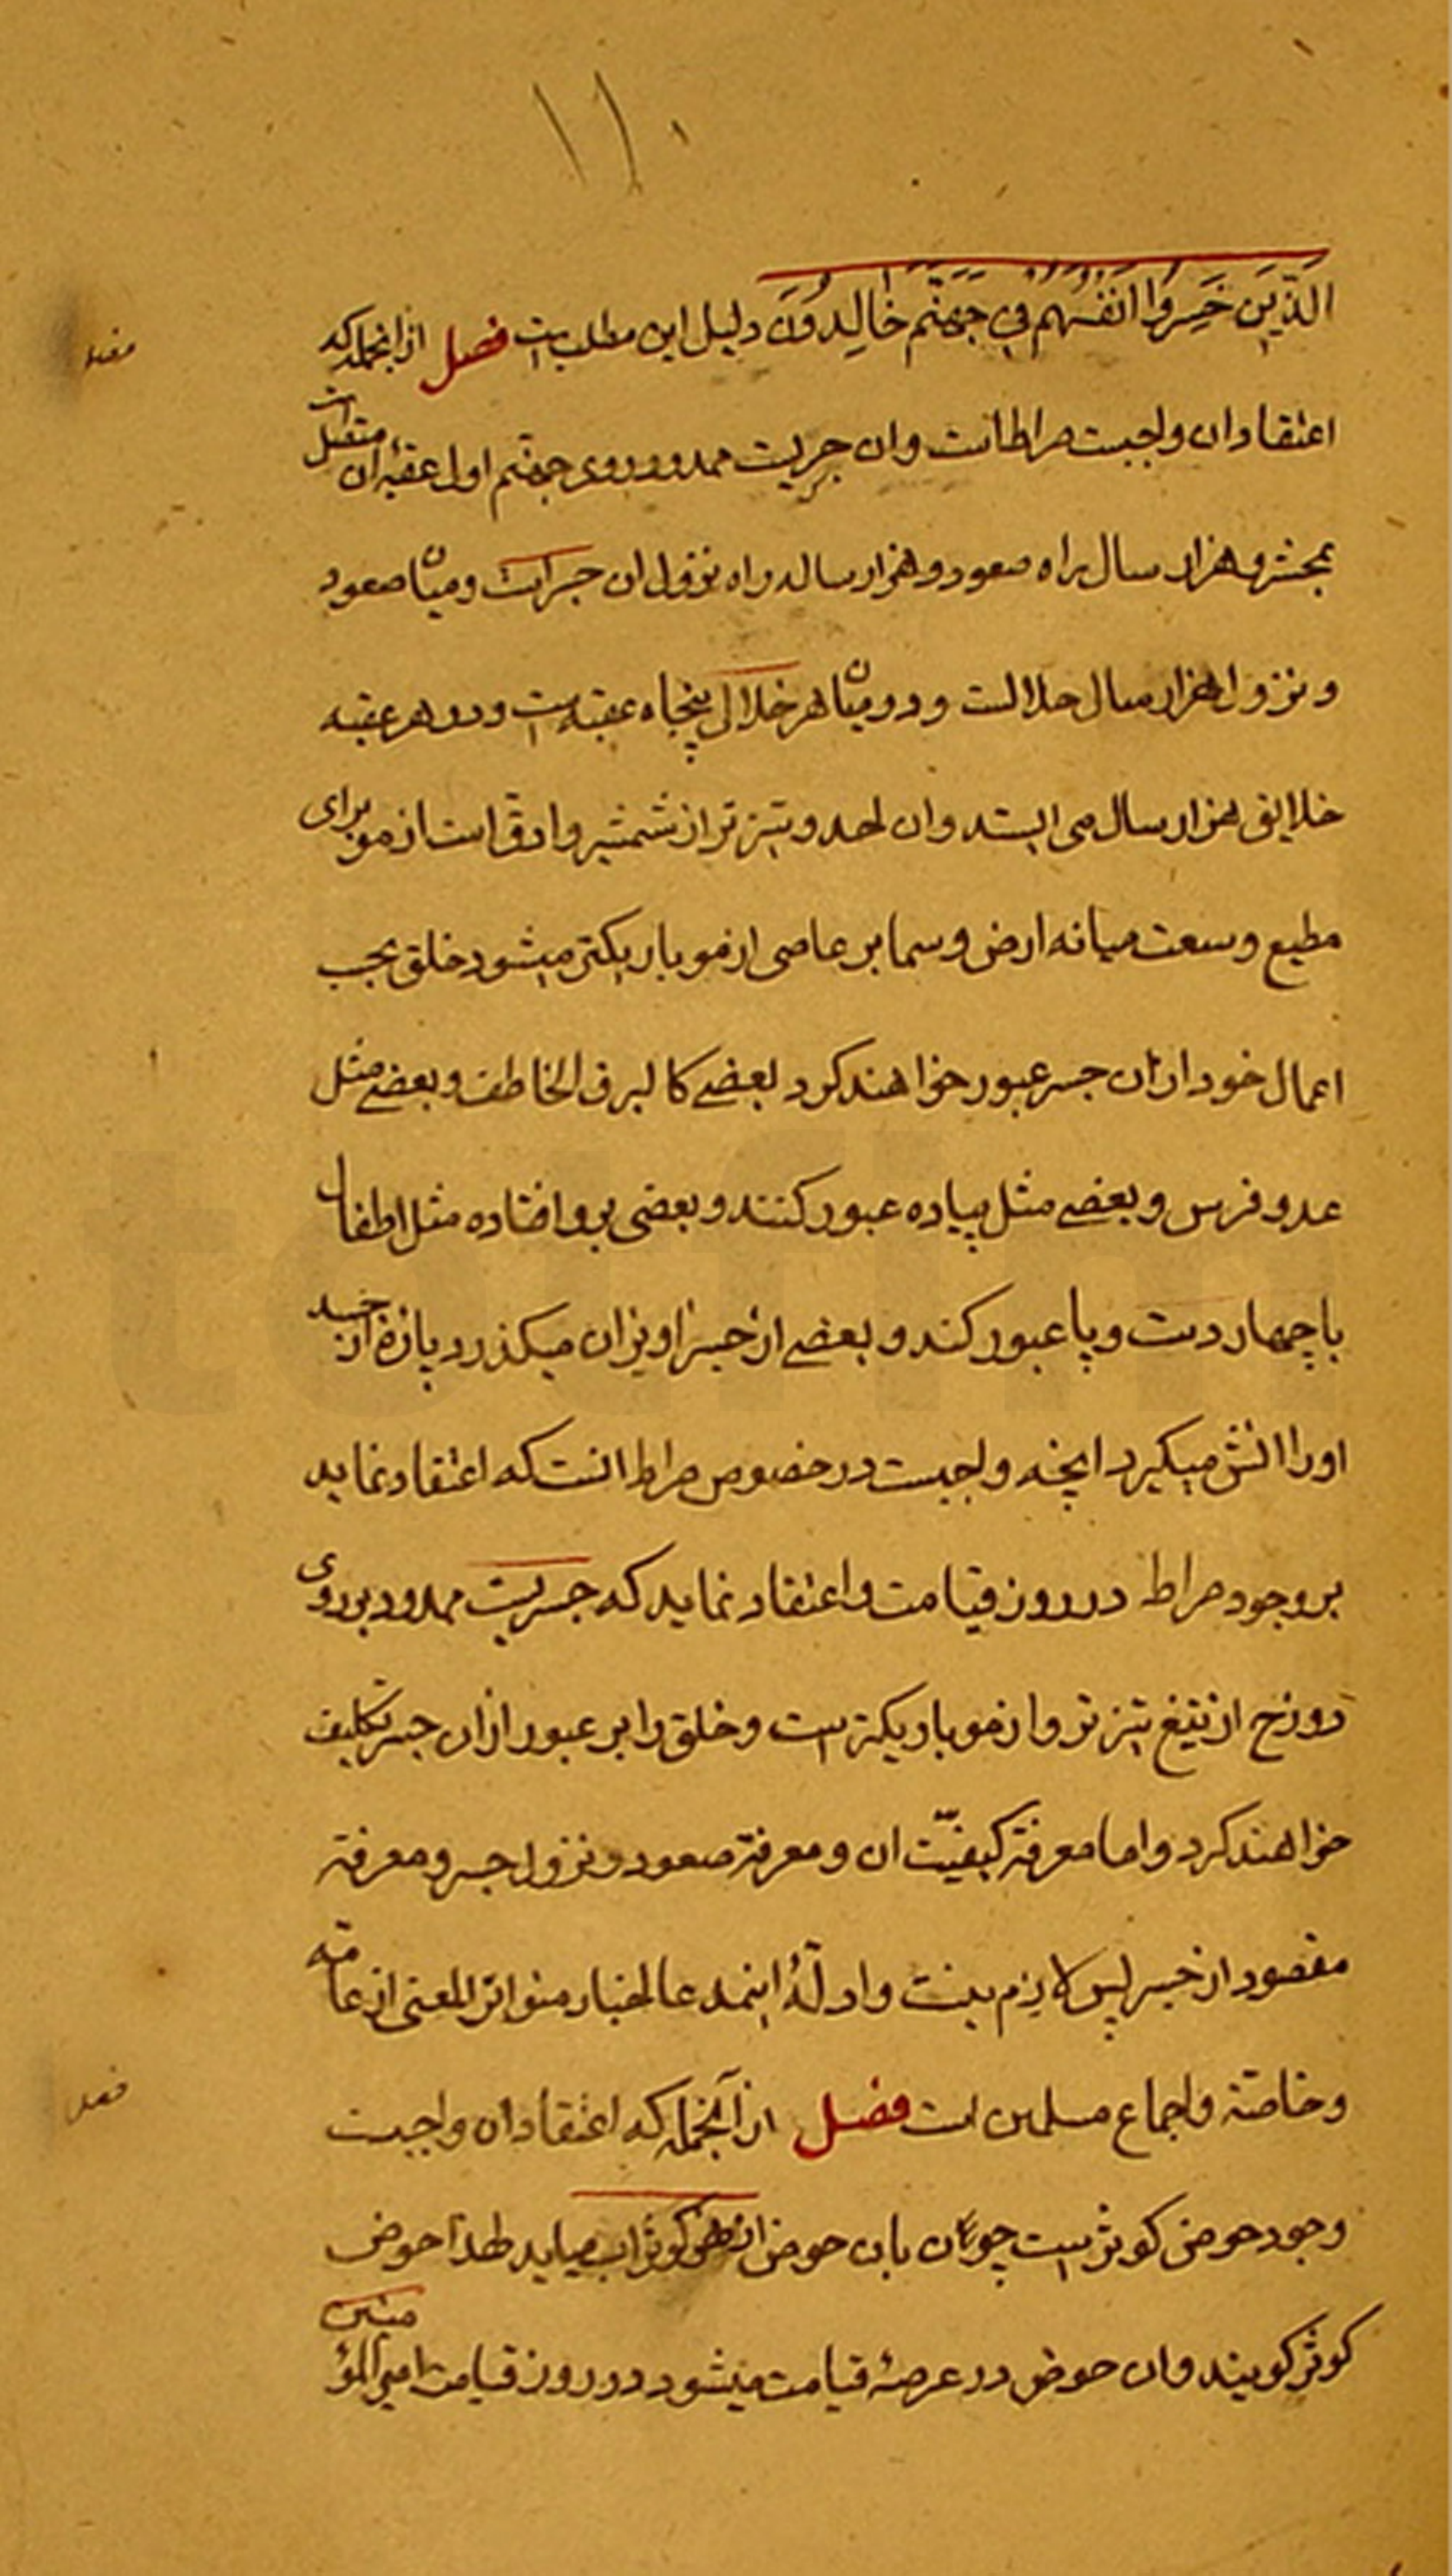 ۱۱۰
الَّذینَ خَسِرُوا اَنْفُسَهُم فی جَهَنَّم خالِدُونَ دلیل این مطلب است فصل از انجمله که
اعتقاد ان واجبست صراطانست وان جسریست ممدود بروی جهنم اول عقبهٔ ان متصل است
بمحشر و هزار سال براه صعود و هزار ساله راه نزول ان جسر است و میان صعود
و نزول هزار سال حدالست و در میان هر خلال پنجاه عقبه است و در هر عقبه
خلایق هزار سال می ایستد وان احد و تیزتر از شمشیر و ادق است از مو برای
مطیع وسعت میانه ارض و سما بر عاصی از مو باریکتر میشود خلق بحسب
اعمال خود از ان جسر عبور خواهند کرد بعضے کا لبرق الخاطف و بعضے مثل
عدو فرس و بعضے مثل پیاده عبور کنند و بعضی برو افتاده مثل اطفال
با چهار دست و پا عبور کند و بعضے از جسر اویزان میکذرد پارهٔ از جسد
او را اتش میکیرد انچه واجبست در خصوص صراط انست که اعتقاد نماید
بر وجود صراط در روز قیامت و اعتقاد نماید که جسریست ممدود بر روی
دوزخ از تیغ تیزتر و از مو باریکتر است و خلق را بر عبور از ان جسر تکلیف
خواهند کرد و اما معرفة کیفیّت ان و معرفة صعود و نزول جسر و معرفة
مقصود از جسر پس لازم نیست و ادلّهٔ اینمدعا اخبار متواتر المعنی از عامه
و خاصّه و اجماع مسلمین است فصل از آنجمله که اعتقاد ان واجبست
وجود حوض کوثر است چون بان حوض از نهر کوثر اب میاید لهذا حوض
کوثر کویند وان حوض در عرصهٔ قیامت میشود در روز قیامت امیر المؤمنین
فصل